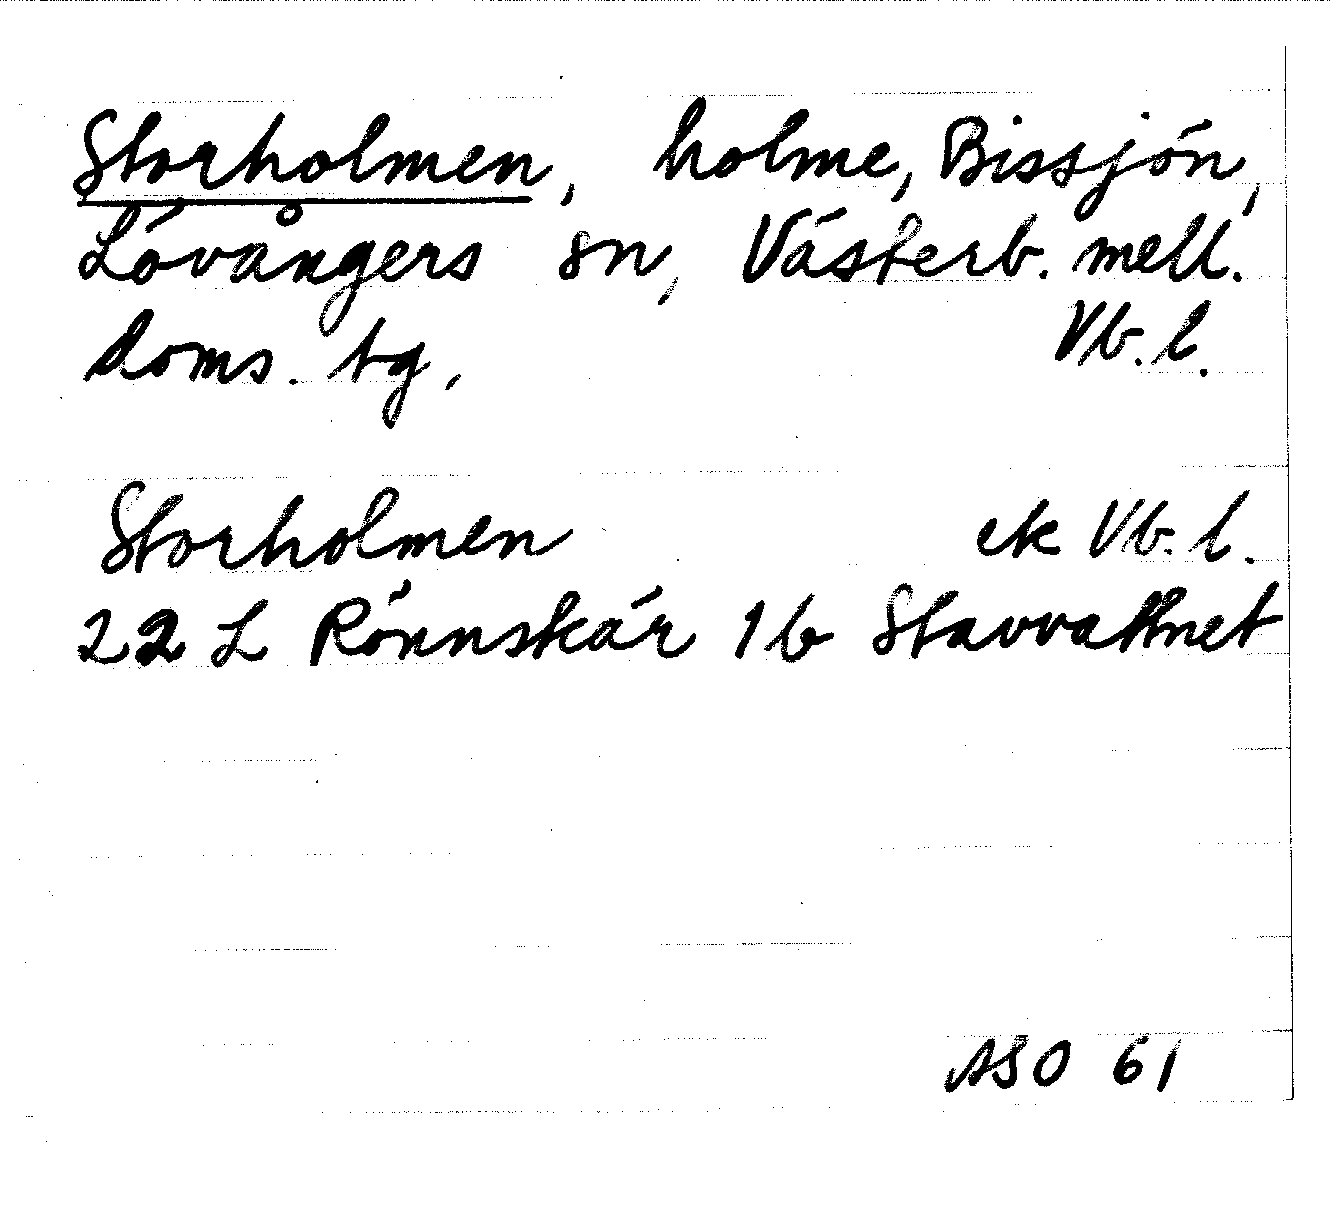 Storholmen, holme, Bissjön,
Lövångers sn, Västerb. mell.
doms. tg, Vb. l.
Storholmen ek Vb. l.
22 L Rönnskär 1b Stavvattnet
ASO 61